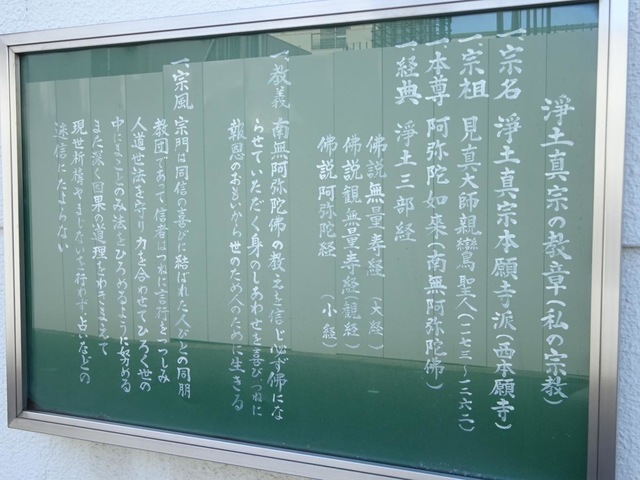 浄土真宗の教章(私の宗教)
一宗名 浄土真宗本願寺派(西本願寺)
一宗祖 見真大師親鸞聖人(一一七三〜一二六二)
一本尊 阿弥陀如来(南無阿弥陀佛)
一経典 浄土三部経
佛説無量寿経(大経)
佛説観無量寿経(観経)
佛説阿弥陀経(小経)
一教義 南無阿弥陀佛の教えを信じ必ず佛にな
らせていただく身のしあわせを喜びつねに
報恩のおもいから世のため人のために生きる
一宗風 宗門は同信の喜びに結ばれた人びとの同朋
教団であって信者はつねに言行をつつしみ
人道世法を守り力を合わせてひろく世の
中にまことのみ法をひろめるように努める
また深く因果の道理をわきまえて
現世祈祷やまじないを行わず占いなどの
迷信にたよらない